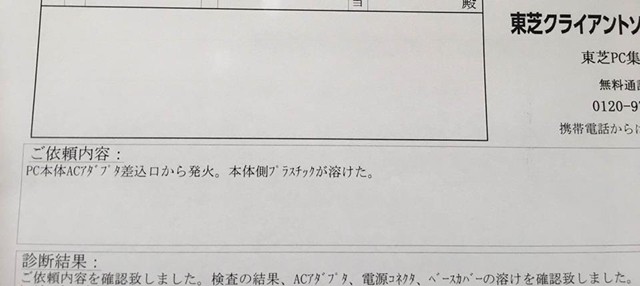 殿
東芝クライアントソ
東芝PC集
無料通話
0120-97
携帯電話からは
ご依頼内容：
PC本体ACｱﾀﾞﾌﾟﾀ差込口から発火。本体側ﾌﾟﾗｽﾁｯｸが溶けた。
診断結果：
ご依頼内容を確認致しました。検査の結果、ACｱﾀﾞﾌﾟﾀ、電源ｺﾈｸﾀ、ﾍﾞｰｽｶﾊﾞｰの溶けを確認致しました。